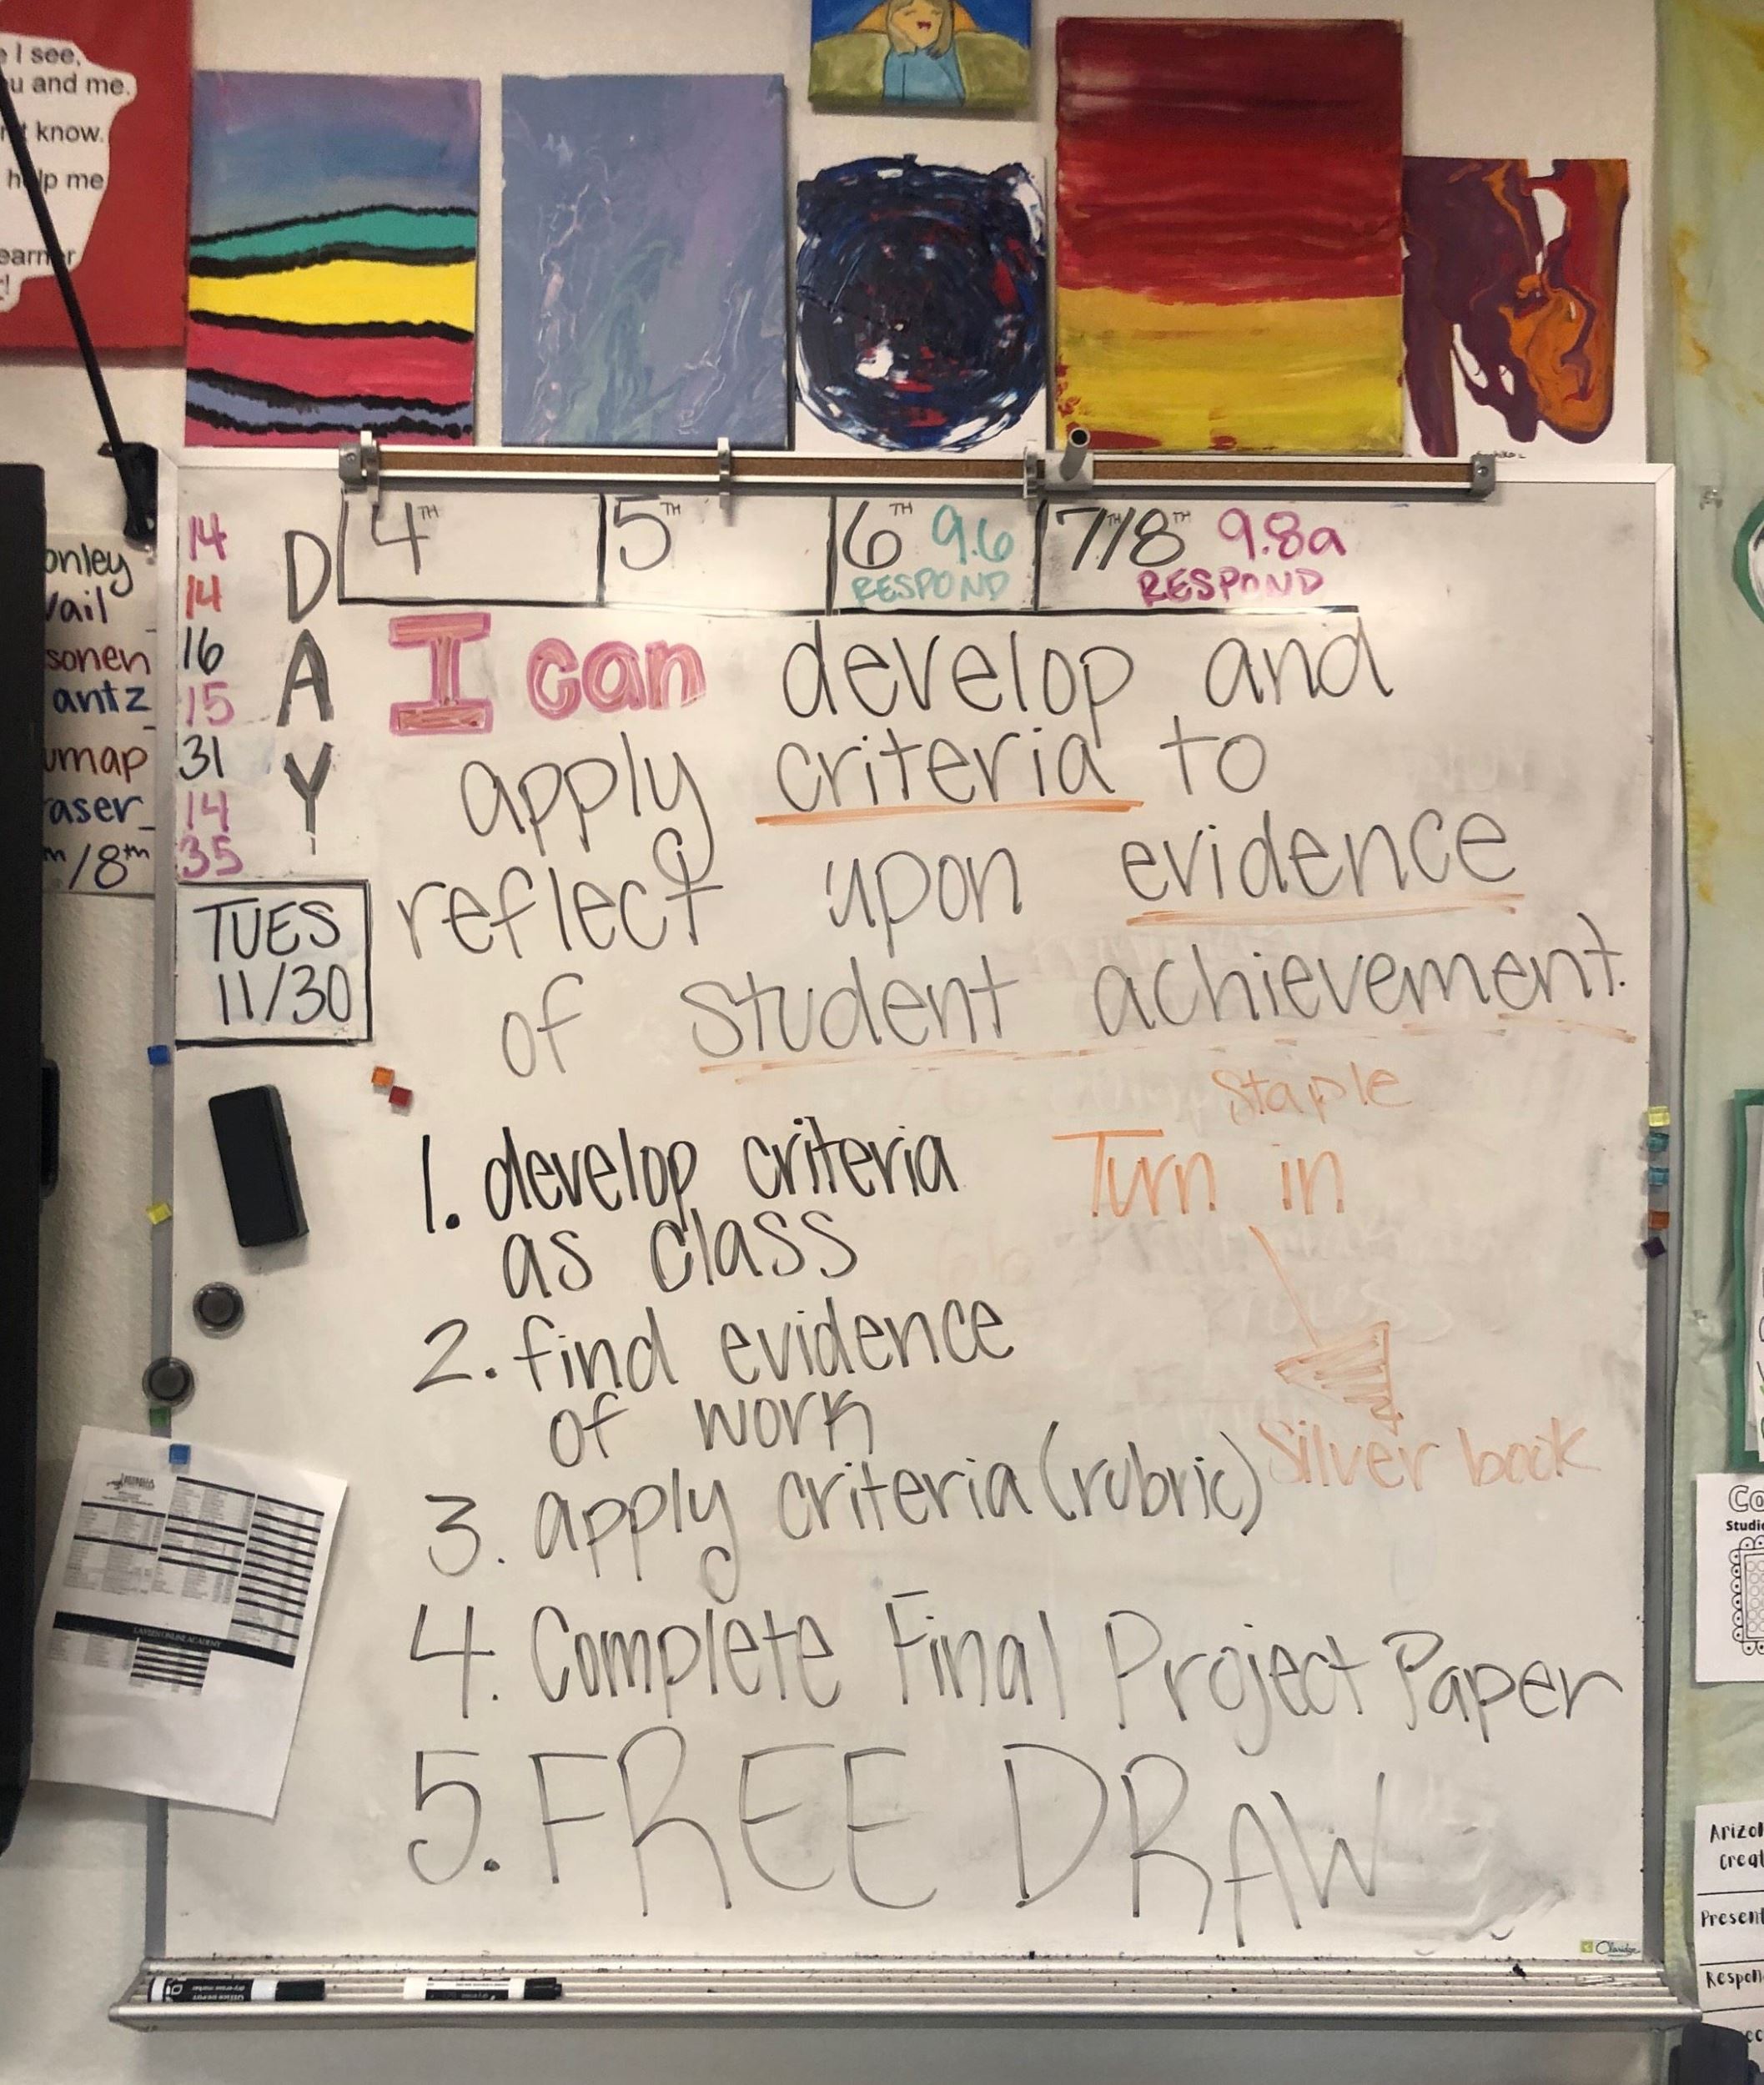 I see,
u and me.
know.
help me
earner
onley 14
Vail 14
sonen 16
antz 15
umap 31
raser 14
/8TH 35
DAY
4TH
5TH
6TH 9.6
RESPOND
7TH/8TH 9.8a
RESPOND
I can develop and
apply criteria to
reflect upon evidence
of student achievement.
TUES
11/30
1. develop criteria
as class
2. find evidence
of work
3. apply criteria (rubric)
4. Complete Final Project Paper
5. FREE DRAW
Staple
Turn in
Silver book
LAVEEN ONLINE ACADEMY
Co
Studi
Arizo
Creat
Present
Respon
Claridge